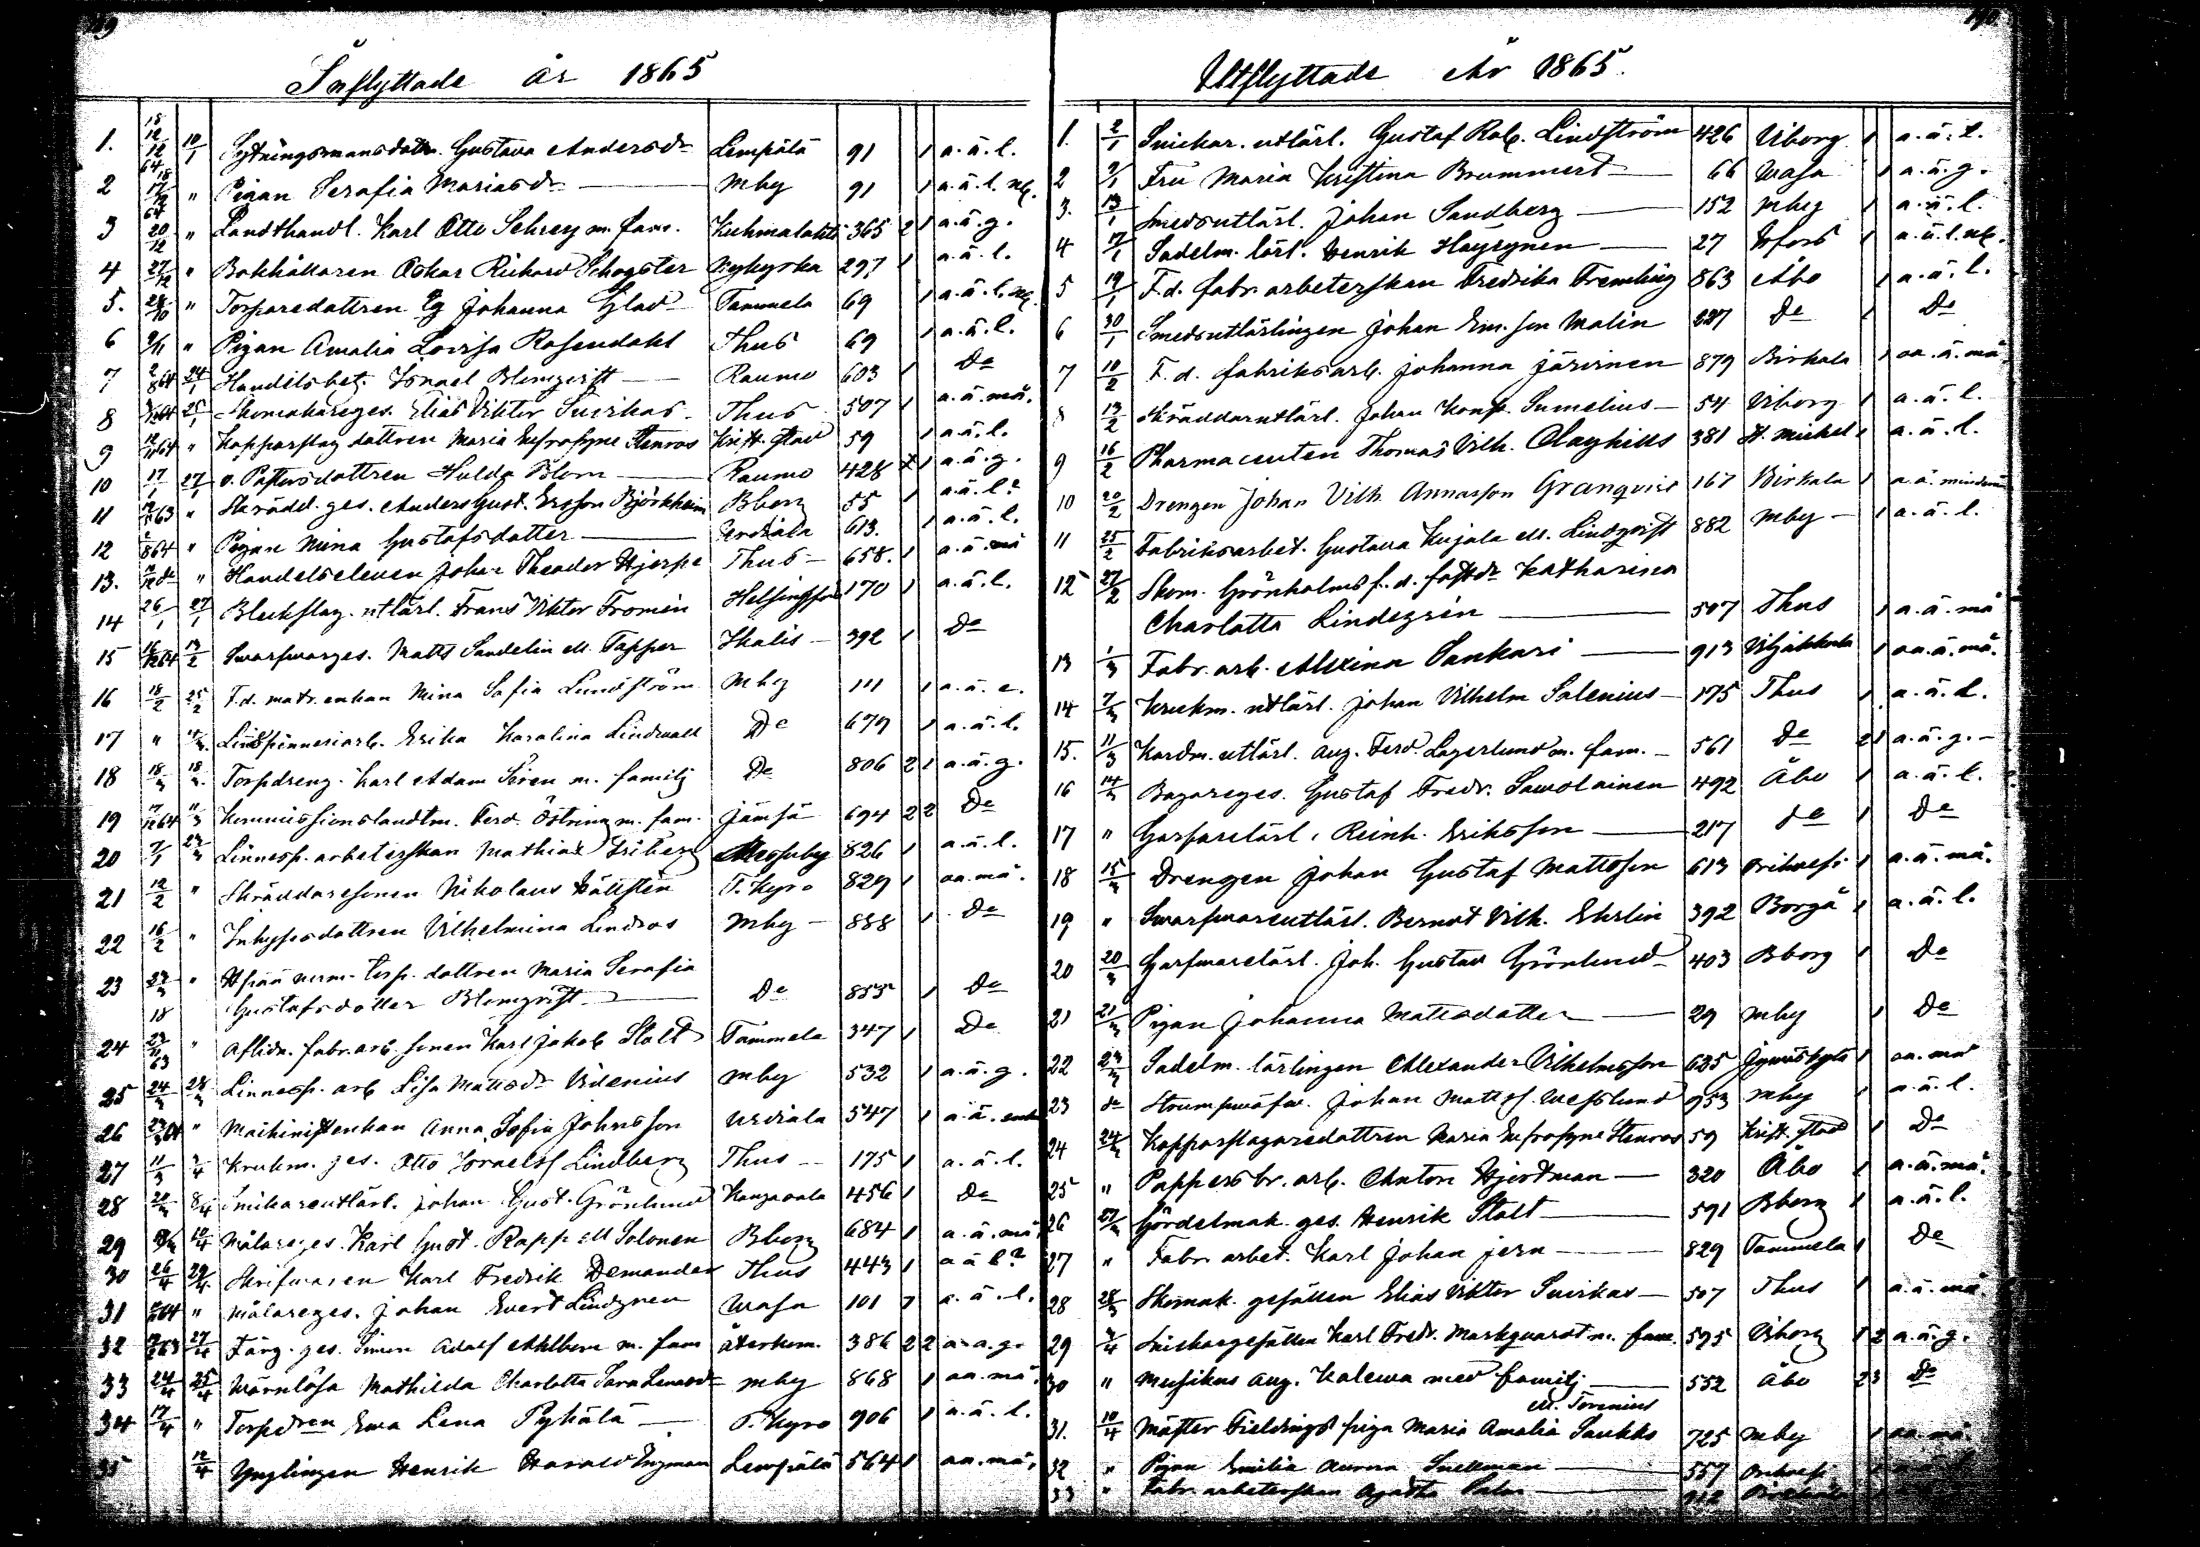 Inflyttade år 1865
1. 18 12/12 64 10/1 Sytningsmansdottr. Gustava Andersdr Lempälä 91 1 a.ä.l.
2 18 17/12 64 " Pigan Serafia Mariasdr — Mby 91 1 a.ä.l. ng.
3 20/12 " Landthandl. Karl Otto Schrey m. fam. Kuhmalahti 365 2 1 a.ä.g.
4 27/12 " Bokhållaren Oskar Richard Schogster Nykyrka 297 1 a.ä.l.
5. 28/10 " Torparedottren Eg Johanna Glad Tammela 69 1 a.ä.l. ng.
6 9/11 " Pigan Amalia Lovisa Rosendahl Thus 69 1 a.ä.l.
7 2/8 64 24/1 Handelsbet. Israel Blomqvist — Raumo 603 1 De
8 25/1 Skomakareges. Elias Viktor Suirkas Thus 507 1 a.ä.må.
9 64 " Kopparslag. dottren Maria Eufrosyne Stenroos Krist. stad 59 1 a.ä.l.
10 17/1 27/1 v. Pastorsdottren Hulda Blom — Raumo 428 1 a.ä.g.
11 63 " Skrädd. ges. Anders Gust. Ersson Björkheim Bborg 55 1 a.ä.l?
12 64 " Pigan Mina Gustafsdotter — Urdiala 613. 1 a.ä.l.
13. de " Handelseleven Johan Theodor Hjerpe Thus — 658. 1 a.ä.må
14 26/1 27/1 Bleckslag. utlärl. Frans Viktor Fromén Helsingfors 170 1 a.ä.l.
15 16/12 64 13/2 Swarfwarges. Matts Sandelin ell. Tapper Ikalis — 392 1 De
16 18/2 25/2 F.d. matr. enkan Mina Sofia Lundström Mby 111 1 a.ä.e.
17 " Linspinneriarb. Erika Karolina Lindwall De 679 1 a.ä.l.
18 18/3 18/3 Torpdreng. Karl Adam Siren m. familj De 806 2 1 a.ä.g.
19 17/12 64 11/3 Kommissionslandtm. Ferd. Östring m. fam. Jämsä 694 2 2 De
20 7/1 Linnesp. arbeterskan Mathias Friberg Messuby 826 1 a.ä.l.
21 12/2 " Skräddaresonen Nikolaus Hällstén T. Kyro 829 1 aa.må.
22 16/2 " Inhysesdottren Vilhelmina Lindros Mby — 838 1 De
23 22/3 " torp. dottren Maria Serafia
Gustafsdotter Blomqvist — De 853 1 De
24 18 63 " Aflidn. fabr. arb. sonen Karl Jakob Stolt Tammela 347 1 De
25 24/3 28/3 Linnesp. arb Lisa Mattsdr Videnius Mby 532 1 a.ä.g.
26 64 " Maskinistenkan Anna Sofia Johnsson Urdiala 547 1 a.ä. enka
27 11/3 7/4 Krukm. ges. Otto Israelsf Lindberg Thus — 175 1 a.ä.l.
28 20/3 8/4 Snikareutlärl. Johan Gust. Grönlund Kangasala 456 1 De
29 12/4 Målareges. Karl Gust. Rapp ell Solonen Bborg 684 1 a.ä.må.
30 26/4 29/4 Skrifwaren Karl Fredrik Demander Thus 443 1 a ä l?
31 64 " Målareges. Johan Evert Lindgren Wasa 101 1 a.ä.l.
32 63 27/4 Färg. ges. Simon Adolf Ahlbom m. fam återkom. 386 2 2 a.a.g.
33 24/4 25/4 Wärnlösa Mathilda Charlotta Sara Mby 868 1 aa.må.
34 17/4 " Torpdren Ewa Lena Pyhälä — T. Kyro 906 1 a.ä.l.
35 12/4 Ynglingen Henrik Harald Engman Lempälä 564 1 aa.må.
Utflyttade År 1865.
1. 2/1 Snickar. utlärl. Gustaf Rob. Lindström 426 Viborg 1 a.ä.l.
2 9/1 Fru Maria Kristina Brummert — 66 Wasa 1 a.ä.g.
3. 13/1 Smedsutlärl. Johan Sandberg — 152 Mby 1 a.ä.l.
4 17/1 Sadelm. lärl. Henrik Häyrynen — 27 Hfors 1 a.ä.l. ng.
5 19/1 F.d. fabr. arbeterskan Fredrika Fremling 863 Åbo 1 a.ä.l.
6 30/1 Smedsutlärlingen Johan Em. son Malin 227 De 1 De
7 10/2 F.d. fabriksarb. Johanna Järvinen 879 Birkala 1 aa.ä.må.
8 13/2 Skräddarutlärl. Johan Konst. Sumelius — 54 Viborg 1 a.ä.l.
9 16/2 Pharmaceuten Thomas Vilh. Clayhills 381 St. Michel 1 a.ä.l.
10 20/2 Drengen Johan Vilh Annasson Granqvist 167 Birkala 1 a.ä. minderår
11 25/2 Fabriksarbet. Gustava Kujala ell. Lindqvist 882 Mby — 1 a.ä.l.
12 27/2 Skom. Grönholms f.d. fostdr Katharina
Charlotta Lindegrén — 507 Thus 1 a.ä.må
13 1/3 Fabr. arb. Alexina Sankari — 913 Viljakkala 1 aa.ä.må.
14 7/3 Krukm. utlärl. Johan Vilhelm Salenius — 175 Thus 1 a.ä.l.
15. 11/3 Kardm. utlärl. Aug. Ferd. Lagerlund m. fam. — 561 De 2 1 a.ä.g. —
16 14/3 Bagareges. Gustaf Fredr. Sawolainen 492 Åbo 1 a.ä.l.
17 " Garfvarelärl. Reinh. Eriksson — 217 de 1 De
18 15/3 Drengen Johan Gustaf Mattsson 613 Orihvesi 1 a.ä.må.
19 " Swarfwareutlärl. Berndt Vilh. Ehrlin 392 Borgå 1 a.ä.l.
20 20/3 Garfwarelärl. Joh. Gustav Grönlund 403 Bborg 1 De
21 21/3 Pigan Johanna Mattsdotter — 29 Mby 1 De
22 23/3 Sadelm. lärlingen Alexander Vilhelmsson 625 Jywäskylä 1 aa.må
23 de Strumpwäfw. Johan Mattsf. Wesslund 953 Mby 1 a.ä.l.
24 24/3 Kopparslagaredottren Maria Eufrosyne Stenroos 59 Krist. stad 1 De
25 " Pappersbr. arb. Anton Hjortman — 320 Åbo 1 a.ä.må.
26 27/3 Gördelmak. ges. Henrik Stolt — 591 Bborg 1 a.ä.l.
27 " Fabr. arbet. Karl Johan Jern — 829 Tammela 1 De
28 28/3 Skomak. gesällen Elias Viktor Suirkas — 507 Thus 1 a.ä.må
29 3/4 Snickargesällen Karl Fredr. Markqvardt m. fam. 595 Viborg 1 2 a.ä.g.
30 " Musikus Aug. Kalewa med familj — 552 Åbo 2 3 De
ell. Torenius
31. 10/4 Mäster Fieldings piga Maria Amalia Saukko 725 Mby 1 aa.må.
32 " Pigan Emilia Aurora Snellman — 557 Orihvesi 1
33 " Fabr. arbeterskan Agatha — 912